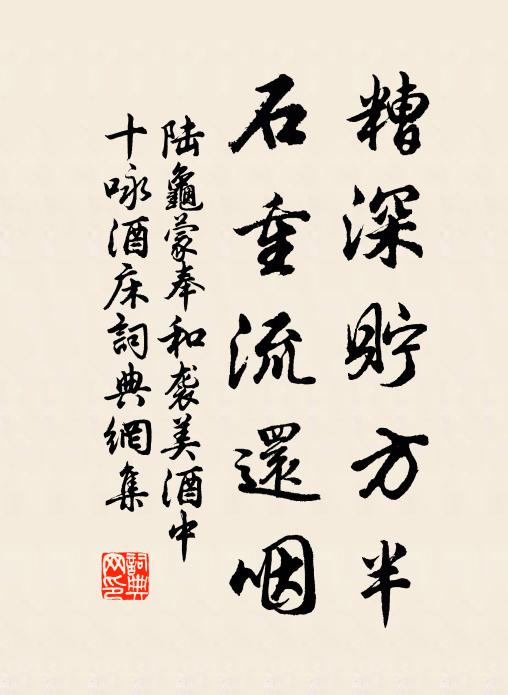 糟深貯方半
石重流還咽
陆龜蒙奉和袭美酒中
十咏酒床詞典網集
詞典
网印